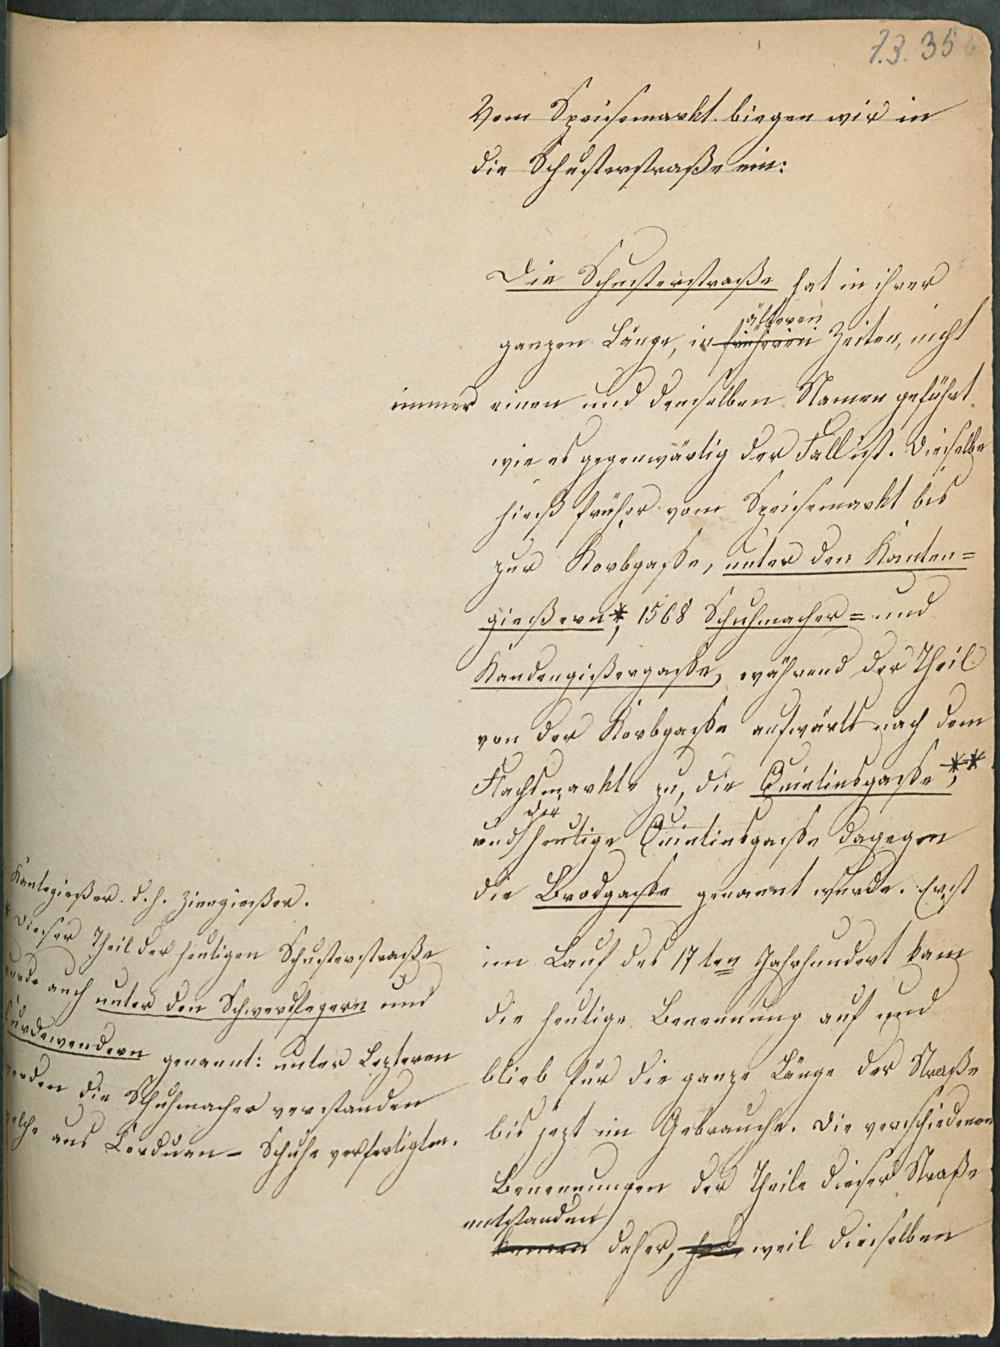 73. 35
Vom Speisemarkt biegen wir in
die Schusterstraße ein:
Die Schusterstraße hat in ihrer
älteren
ganzen Länge, in früheren Zeiten, nicht
immer einen und denselben Namen geführt
wie es gegenwärtig der Fall ist. Dieselbe
hieß früher vom Speisemarkt bis
zur Korbgasse, unter den Kanten=
gießern*, 1568 Schuhmacher= und
Kandengießergasse, während der Theil
von der Korbgasse aufwärts nach dem
Flachsmarkte zu, die Quintinsgasse**,
die
und heutige Quintinsgasse dagegen
die Brodgasse genannt wurde. Erst
im Lauf des 17ten Jahrhundert kam
die heutige Benennung auf und
blieb für die ganze Länge der Straße
bis jezt im Gebrauche. Die verschiedenen
Benennungen der Theile dieser Straße
entstanden
kamen daher, weil dieselben
Kantegießer. d. h. Zinngießer.
* Dieser Theil der heutigen Schusterstraße
wurde auch unter den Schwerdfegern und
Kurdewendern genannt: unter Lezteren
werden die Schuhmacher verstanden
welche aus Corduan- Schuhe verfertigten.